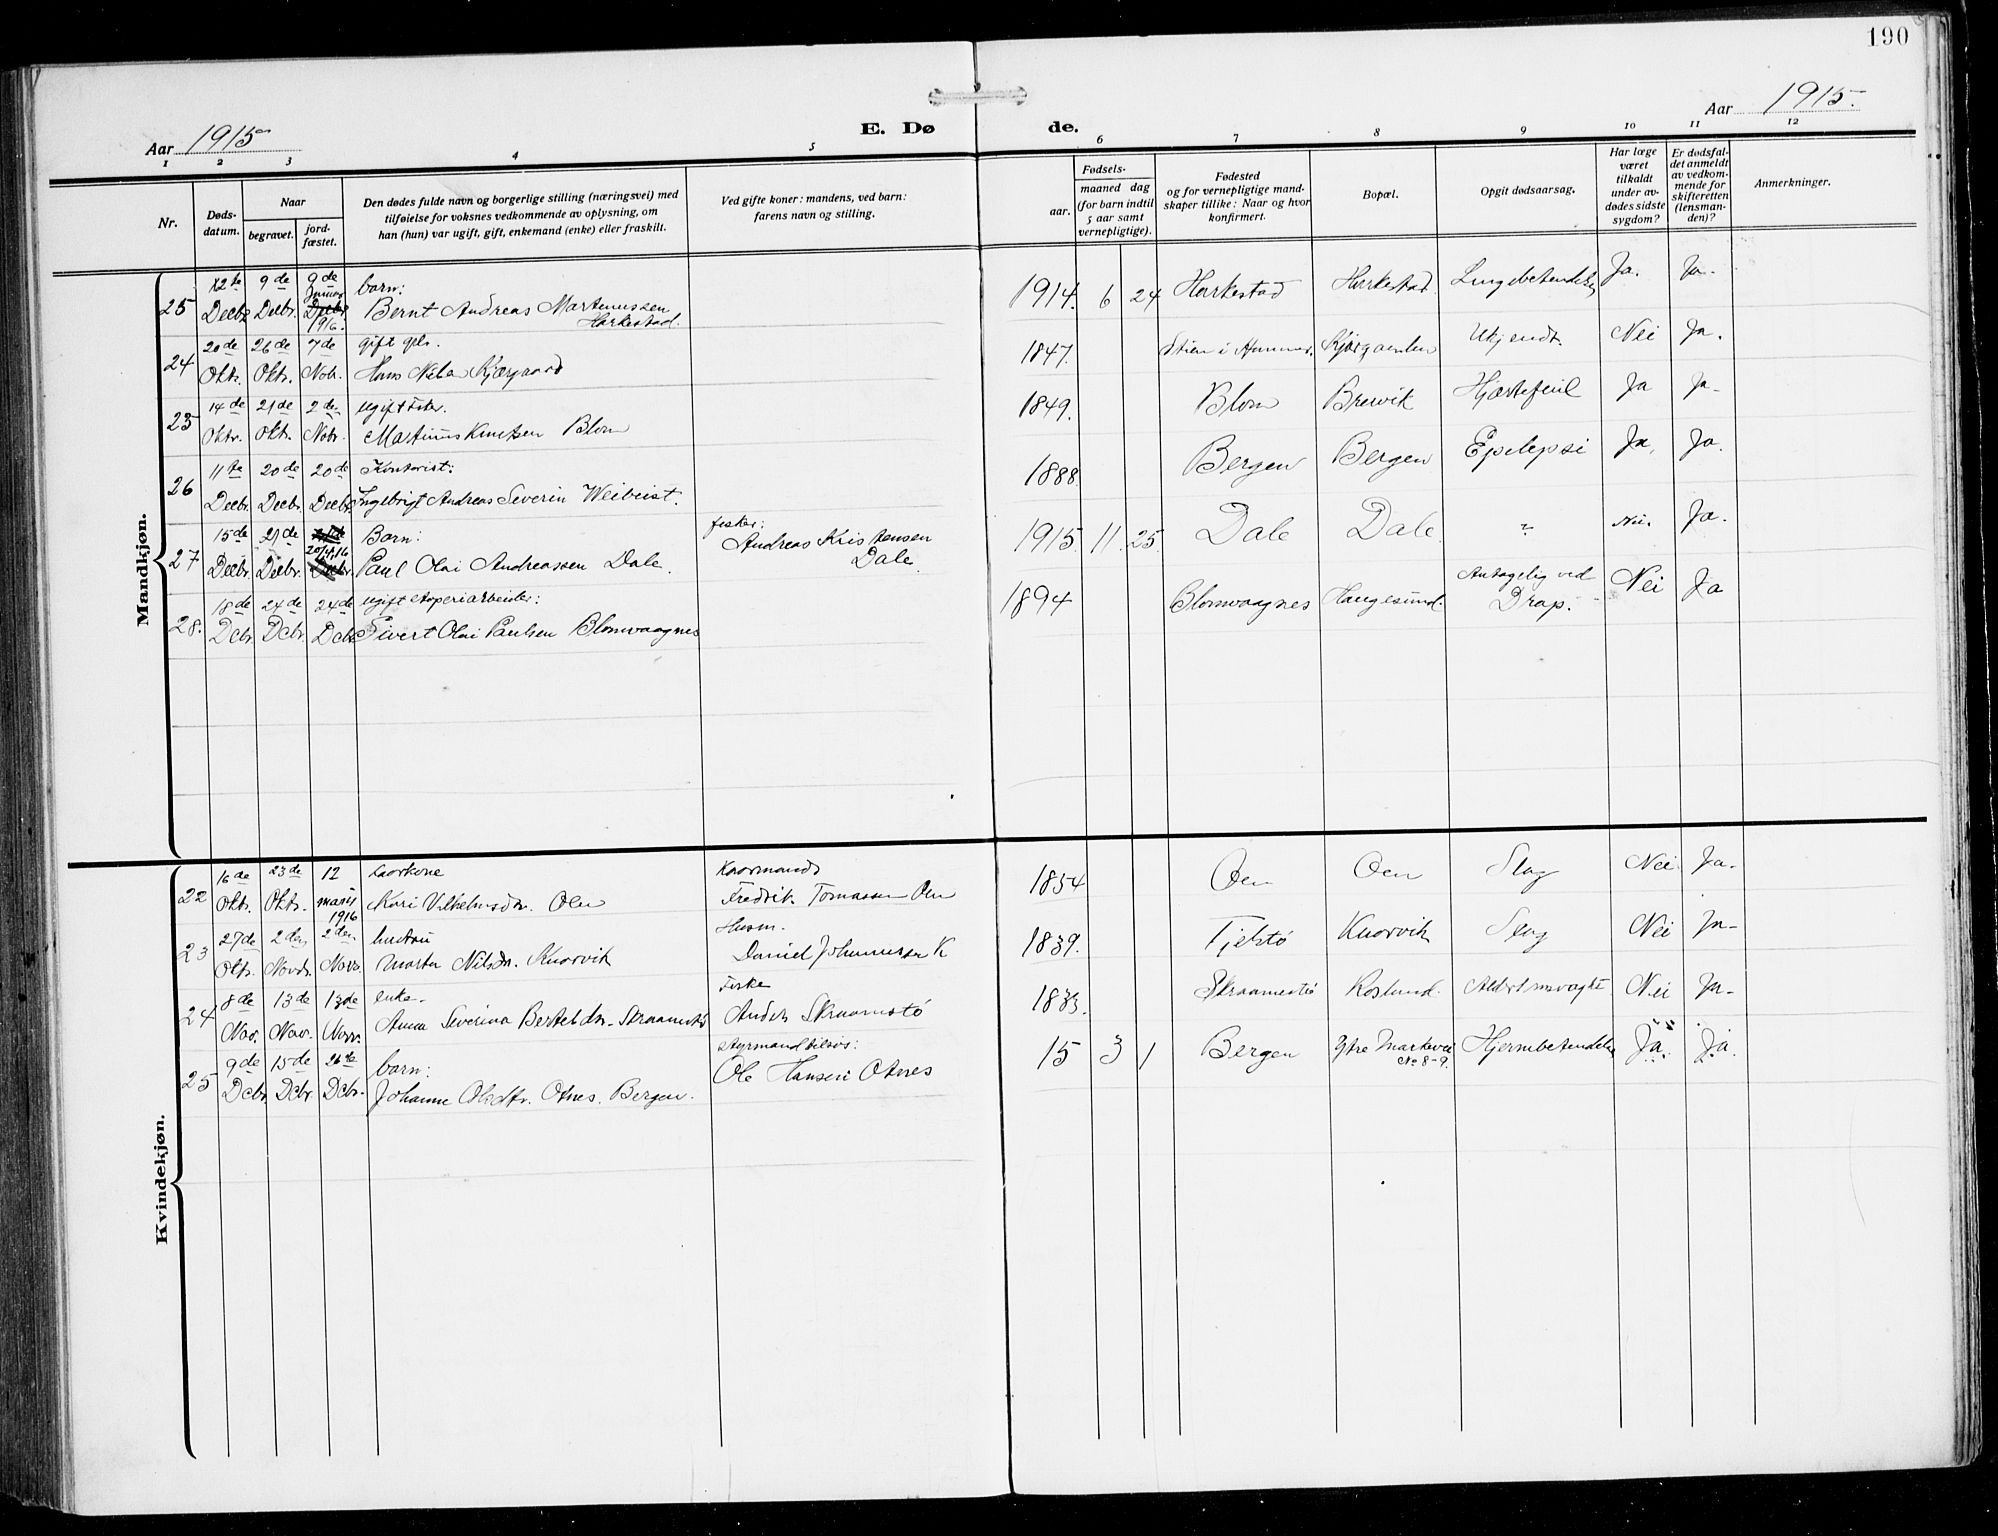 190
Aar 1915
E. Dø
de.
Aar 1915.
1 2 3 4 5 6 7 8 9 10 11 12
Nr.
Døds-
datum.
Naar
begravet.
jord-
fæstet.
Den dødes fulde navn og borgerlige stilling (næringsvei) med
tilføielse for voksnes vedkommende av oplysning, om
han (hun) var ugift, gift, enkemand (enke) eller fraskilt.
Ved gifte koner: mandens, ved barn:
farens navn og stilling.
Fødsels-
aar.
maaned dag
(for barn indtil
5 aar samt
vernepligtige).
Fødested
og for vernepligtige mand-
skaper tillike: Naar og hvor
konfirmert.
Bopæl.
Opgit dødsaarsag.
Har læge
været
tilkaldt
under av-
dødes sidste
sygdom?
Er dødsfal-
det anmeldt
av vedkom-
mende for
skifteretten
(lensman-
den)?
Anmerkninger.
Mandkjøn.
25 Decbr. 9de Decbr. 9de Januar 1916. barn:
Bernt Andreas Martinussen
Harkestad.
1914. 6 24 Harkestad Harkestad. Ja. Ja.
24 20de Oktr. 26de Oktr. 7de Nob. gift
Hans Kjærgaard
1847. Ukjendt. Nei Ja.
23 14de Oktr. 21de Okt. 2den Nobr. ugift
Martinus Knutsen Blom
1849. Blom Brevik Hjertefeil Ja Ja
26 11te Decbr. 20de Decbr. 20de Decbr. Kontorist:
Ingebrigt Andreas Severin Weibeist.
1888 Bergen Bergen Epilepsi Ja, Ja.
27 15de Decbr. 21de Decbr. Barn:
Paul Olai Andreassen Dale.
fisker:
Andreas Kristensen
Dale.
1915 11 25. Dale Dale. ? Nei. Ja.
28. 18de Dcbr. 24de Dcbr. 24de Dcbr. ugift
Sivert Olai Paulsen Blomvaagnes
1894 Blomvaagnes Haugesund. Antagelig ved
Drap. Nei Ja
Kvindekjøn.
22 16de Oktr. 23de Oktr. 12 marts 1916 kaarkone
Kari Vilhelmsdtr. Oen
Kaarmand
Fredrik Tomassen Oen
1854 Oen Oen Slag Nei Ja.
23 27de Oktr. 2den Novbr. 2den Novr. hustru
Marta Nilsdtr. Knarvik
Husm.
Daniel Johannessen K
1839. Tjelstø Knarvik Slag Nei Ja
24 8de Nov. 13de Nov. 13de Novr. enke.
Anna Severina Berteldtr. Skraamestø
Fisker
Anders Skraamestø
1833. Skraamestø Rosland. Nei Ja
25 9de Dcbr 15de Dcbr. Dcbr. barn:
Johanne Olsdtr. Otnes. Bergen.
Ole Hansen Otnes
15 3 1 Bergen Ytre Markevei
No 8-9. Hjernebetendelse Ja. Ja.